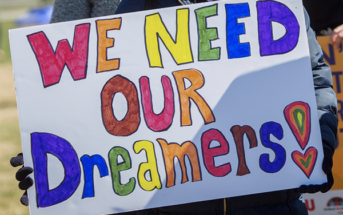 WE NEED
OUR
DREAMERS!